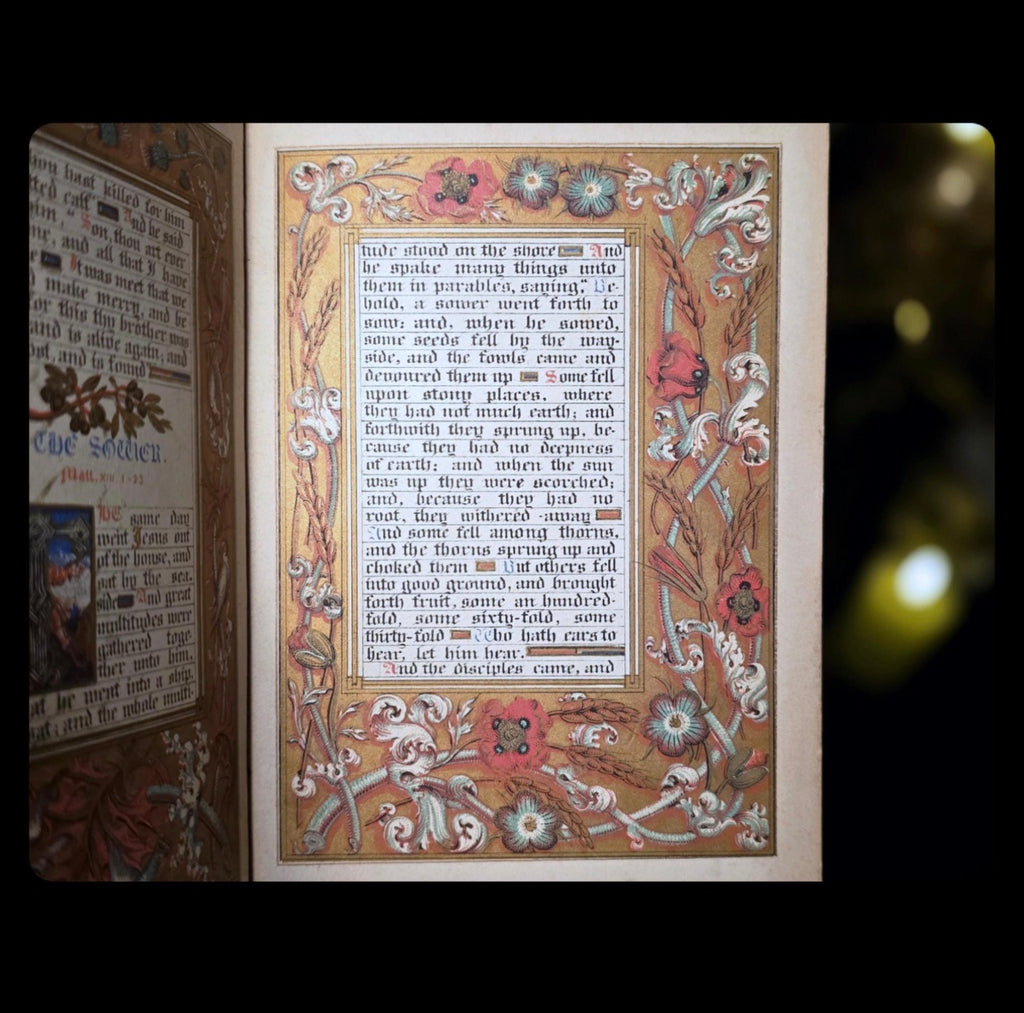 hou hast killed for him
tted calf." And he said
him, "Son, thou art ever
me, and all that I have
It was meet that we
make merry, and be
for this thy brother was
and is alive again; and
ost, and is found"
THE SOWER.
Matt. XIII. 1-23
THE same day
went Jesus out
of the house, and
sat by the sea
side And great
multitudes were
gathered toge-
ther unto him,
at he went into a ship,
sat; and the whole multi-
tude stood on the shore And
he spake many things unto
them in parables, saying," Be-
hold, a sower went forth to
sow: and, when he sowed,
some seeds fell by the way-
side, and the fowls came and
devoured them up Some fell
upon stony places, where
they had not much earth; and
forthwith they sprung up, be-
cause they had no deepness
of earth: and when the sun
was up they were scorched;
and, because they had no
root, they withered away
And some fell among thorns,
and the thorns sprung up and
choked them But others fell
into good ground, and brought
forth fruit, some an hundred-
fold, some sixty-fold, some
thirty-fold Who hath ears to
hear, let him hear.
And the disciples came, and